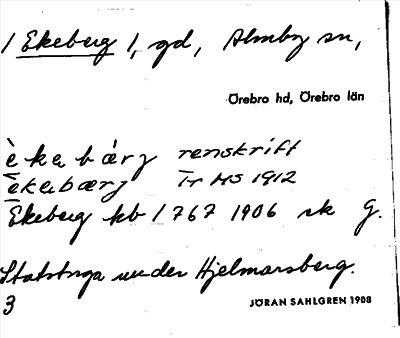 1 Ekeberg 1, gd, Almby sn,
Örebro hd, Örebro län
èkabàrj renskrift
ēkabærj Tr HS 1912
Ekeberg kb 1767 1906 sk G.
Statstnga under Hjelmarsberg.
3
JÖRAN SAHLGREN 1908